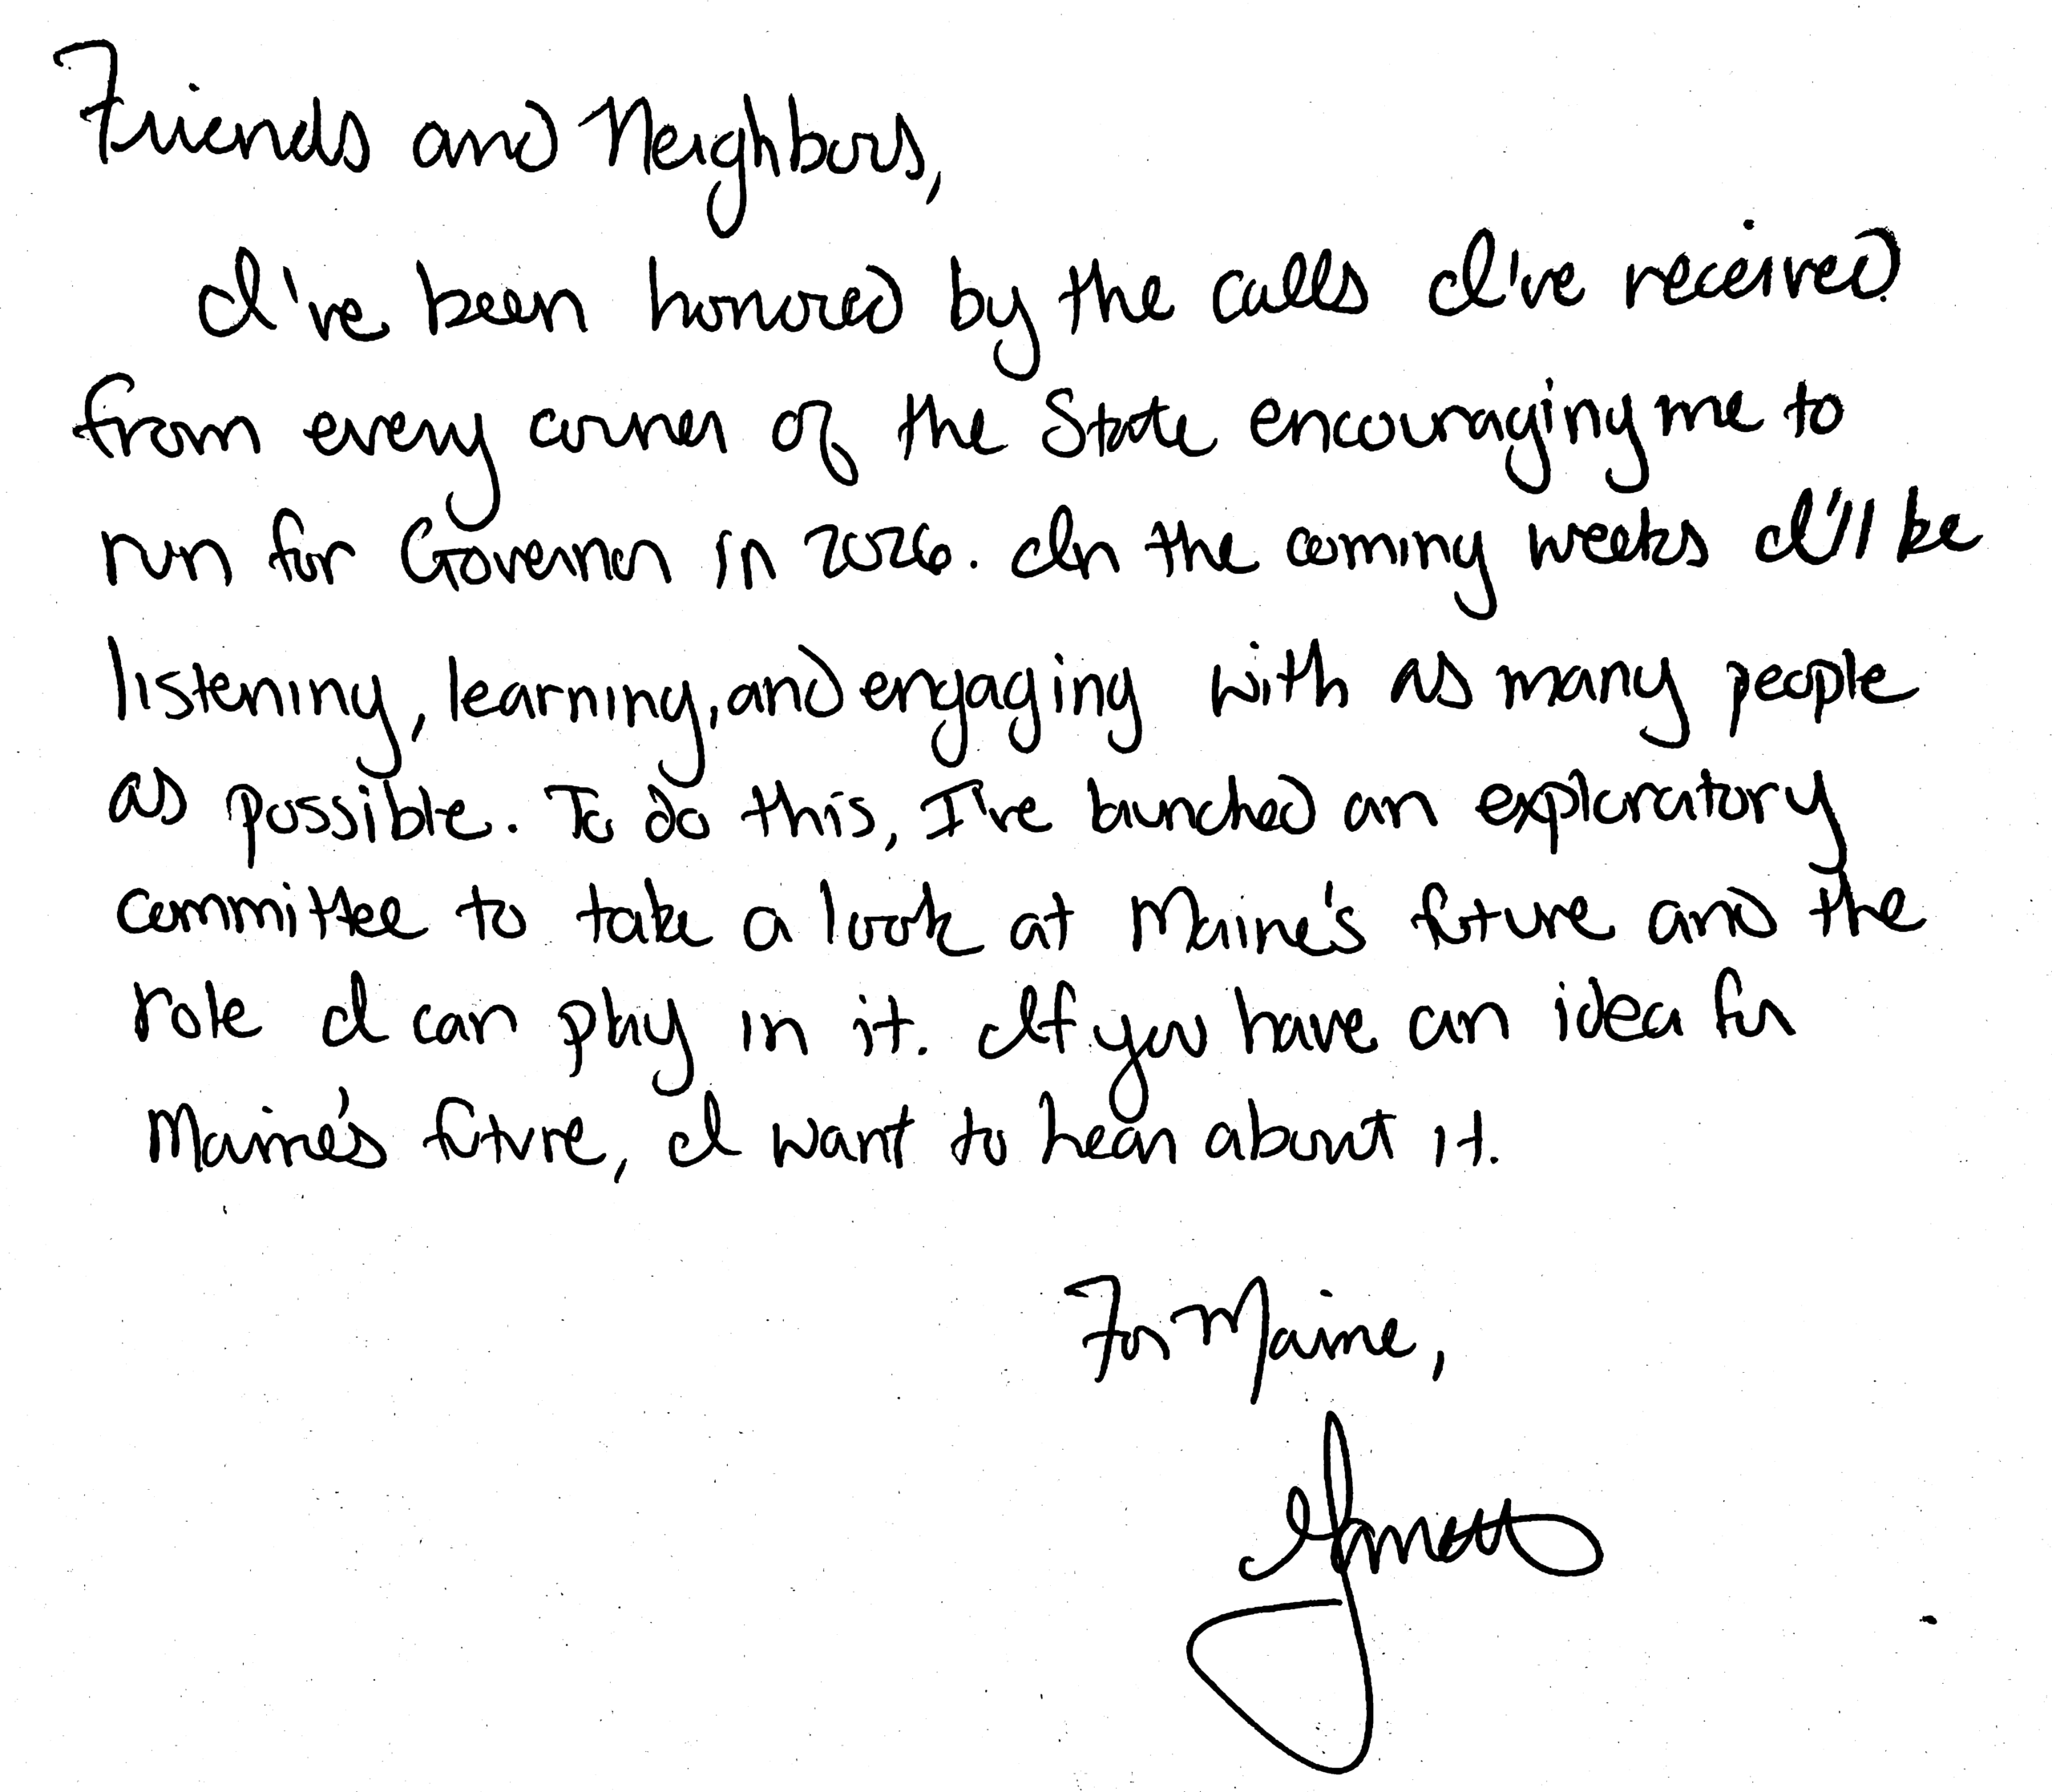 Friends and Neighbors,
I've been honored by the calls I've received
from every corner of the State encouraging me to
run for Governor in 2026. In the coming weeks I'll be
listening, learning, and engaging with as many people
as possible. To do this, I've launched an exploratory
committee to take a look at Maine's future and the
role I can play in it. If you have an idea for
Maine's future, I want to hear about it.
For Maine,